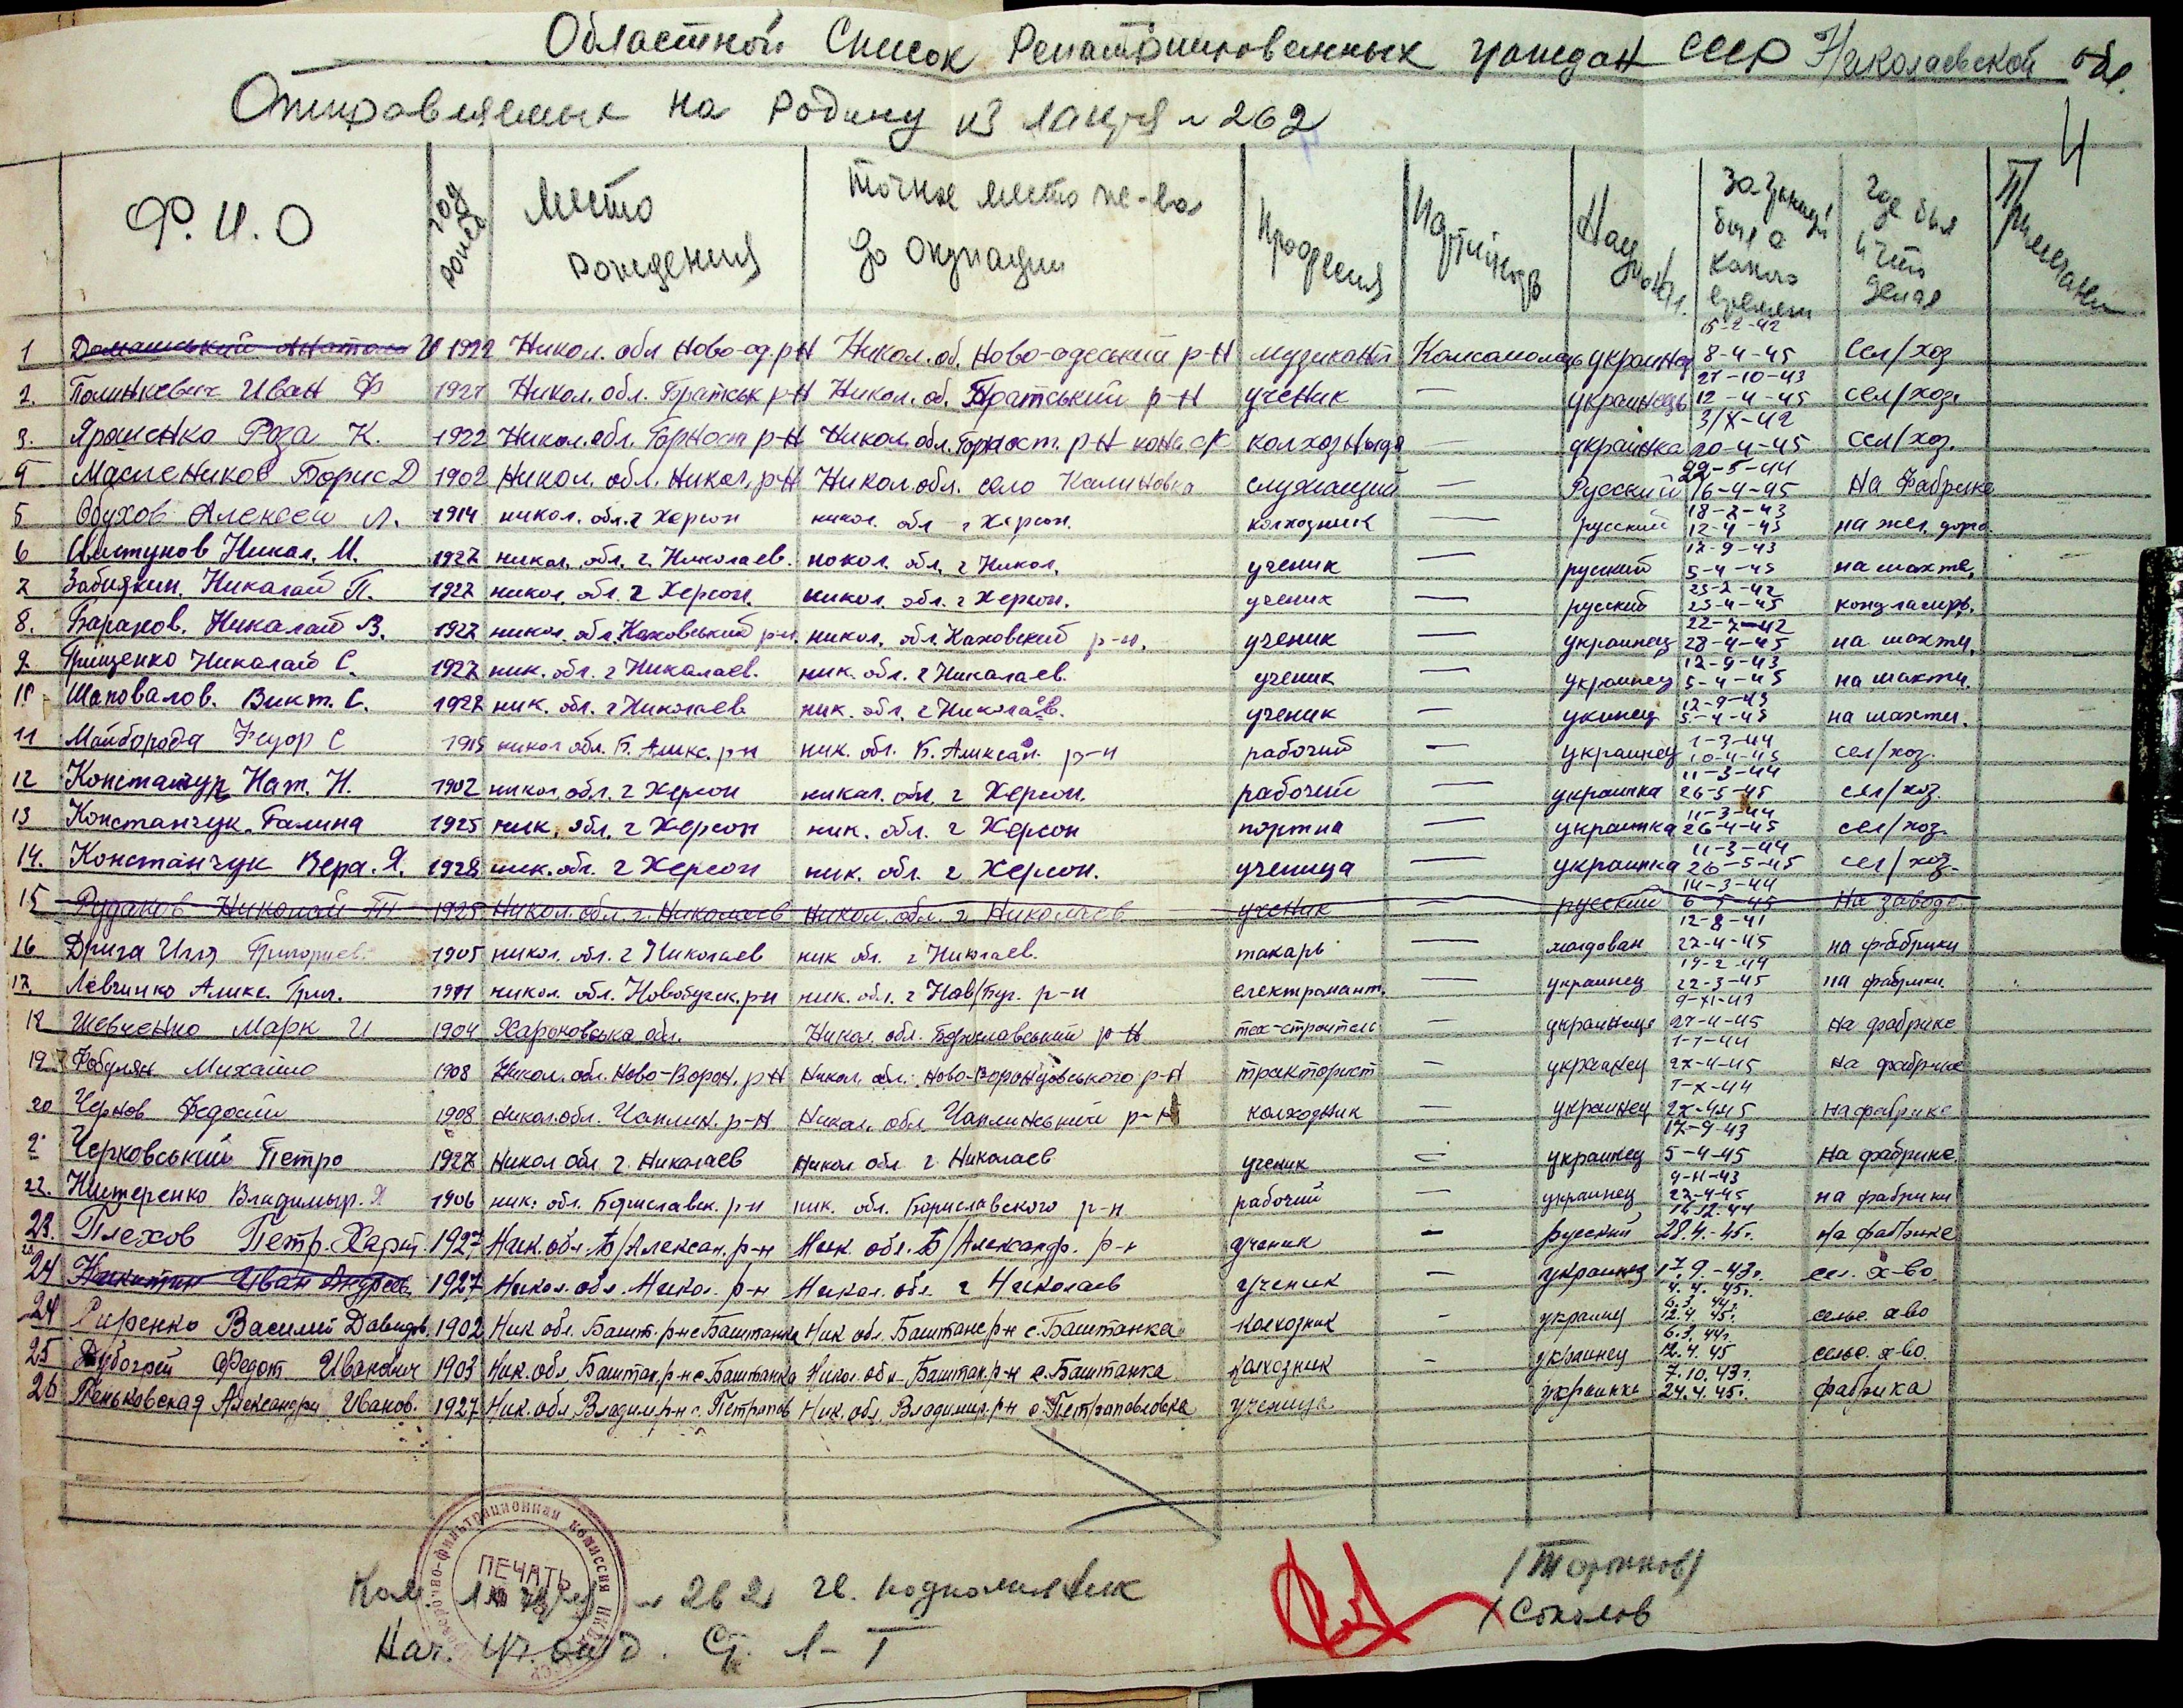 Областной Список Репатриированных граждан СССР Николаевской обл.
Отправляемых на родину из лагеря № 262
4
Ф.И.О
год рожд
Место рождения
Точное место ж-ва до окупации
Професия
Партийность
Национал.
За границей был с какого времени
Где был и что делал
Примечание
1 Доманський Анатол И 1922 Никол. обл Ново-од. р-Н Никол. об. Ново-одеський р-Н музикант Комсомолець украинец 15-2-42 8-4-45 Сел/хоз
2. Полинкевич Иван Ф 1927 Никол. обл. Братськ р-Н Никол. об. Братський р-Н ученик — украинець 27-10-43 12-4-45 сел/хоз.
3. Ярошенко Роза К. 1922 Никол. обл. Горност р-Н Никол. обл. Горност. р-Н кона с/с колхозныця — украинка 3/X-42 20-4-45 Сел/хоз.
4 Маслеников Борис Д 1902 Никол. обл. Никол. р-Н Никол. обл. село Калиновка служащий — Русский 22-5-44 16-4-45 На Фабрике
5 Обухов Алексей Л. 1914 никол. обл. г Херсон никол. обл г Херсон. колходник — русский 18-2-43 12-4-45 на жел. доро.
6 Никол. М. 1927 никол. обл. г. Николаев. никол. обл. г Никол. ученик — руский 17-9-43 5-4-45 на шахте,
7 Забияхин. Николай П. 1927 никол. обл. г Херсон. никол. обл. г Херсон. ученик — русский 23-2-42 25-4-45 концлагирь.
8. Баранов. Николай В. 1927 никол. обл. Каховський р-н. никол. обл. Каховский р-н. ученик — украинец 22-7-42 28-4-45 на шахти.
9 Грищенко Николай С. 1927 ник. обл. г Николаев. ник. обл. г Николаев. ученик — украинец 17-9-43 5-4-45 на шахти.
10 Шаповалов. Викт. С. 1927 ник. обл. г Николаев. ник. обл. г Николаев. ученик — укинец 17-9-43 5-4-45 на шахти.
11 Майборода Федор С 1915 никол обл. Б. Аликс. р-н ник. обл. Б. Аликсан. р-н рабочий — украинец 1-3-44 10-4-45 сел/хоз.
12 Констанчук Нат. Н. 1902 никол. обл. г Херсон никол. обл. г Херсон. рабочий — украинка 11-3-44 26-5-45 сел/хоз.
13 Констанчук. Галина 1925 ник. обл. г Херсон ник. обл. г Херсон портна — украинка 11-3-44 26-4-45 сел/хоз.
14. Констанчук Вера. Я. 1928 ник. обл. г Херсон ник. обл. г Херсон. ученица — украинка 11-3-44 26-5-45 сел/хоз.
15 Рудаков Николай 1925 Никол. обл. г. Николаев Никол. обл. г Николаев ученик русский 14-3-44 6-5-45 На заводе
16 Дрига Иля Григориев. 1905 никол. обл. г Николаев ник обл. г Николаев. токарь — молдован 12-8-41 27-4-45 на фабрики
17. Левчинко Аликс. Григ. 1911 никол. обл. Новобугск. р-н ник. обл. г Нов/Буг. р-н електромонт. — украинец 19-2-44 22-3-45 на фабрики
18 Шевченко Марк И 1904 Харьковська обл. Никол. обл. Бориславський р-Н тех-строитель — украинец 9-XI-43 27-4-45 На фабрике
19 Фобулян Михайло 1908 Никол. обл. Ново-Ворон. р-Н Никол. обл. Ново-Воронцовського р-Н тракторист — украинец 1-1-44 27-4-45 На фабрике
20 Чернов Федосий 1908 Никол. обл. Чаплин. р-Н. Никол. обл Чаплинський р-Н колходник — украинец 1-X-44 27-4-45 На фабрике
21 Черковський Петро 1927 Никол обл. г. Николаев Никол обл г. Николаев ученик — украинец 17-9-43 5-4-45 На фабрике.
22. Владимыр. Я 1906 ник. обл. Бориславск. р-н ник. обл. Бориславского р-н рабочий — украинец 9-11-43 27-4-45 на фабрики
23. Плехов Петр. Харит. 1927 Ник. обл. Б/Алексан. р-н Ник. обл. Б/Александр. р-н ученик - русский 14-12-44 28.4.-45г. На фабрике
24 Никитин Иван Андреев. 1927 Никол. обл. Никол. р-н Никол. обл. г Николаев ученик - украинец 17.9-43г. 4.4.45г. сел. х-во.
24 Василий Давидов. 1902 Ник обл. Башт. р-н с Баштанка Ник обл. Баштанс р-н с. Баштанка колходник - украинец 6.3.44г. 12.4.45г. сельс. х-во
25 Дубогрей Федот Иванович 1903 Ник. обл. Баштан. р-н с. Баштанка Никол. обл. Баштан р-н с. Баштанка колходник - украинец 6.3.44г. 12.4.45 сельс. х-во.
26 Пеньковская Александра Иванов. 1927 Ник. обл. Владимир-н с. Петропав Ник. обл. Владимир. р-н с. Петропавловка ученица украинка 7.10.43г. 24.4.45г. фабрика
Проверочно-фильтрационная комиссия НКВД СССР
ПЕЧАТЬ
Ком. лагеря № 262 гв. подполковник
/Сколов
Нач. Ст. Л-Т